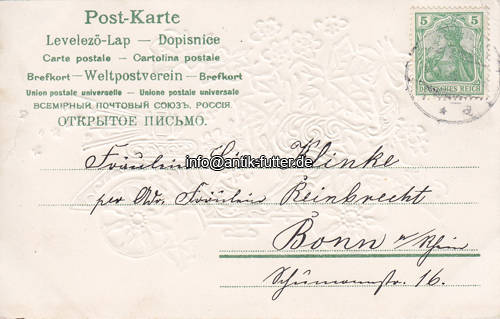 Post-Karte
Levelező-Lap — Dopisnice
Carte postale — Cartolina postale
Brefkort — Weltpostverein — Brefkort
Union postale universelle — Unione postale universale
ВСЕМІРНЫЙ ПОЧТОВЫЙ СОЮЗЪ. РОССІЯ.
ОТКРЫТОЕ ПИСЬМО.
5 5
DEUTSCHES REICH
Fräulein Klinke
info@antik-futter.de
per Adr. Fräulein Reinbrecht
Bonn a/Rhein
Schumannstr. 16.